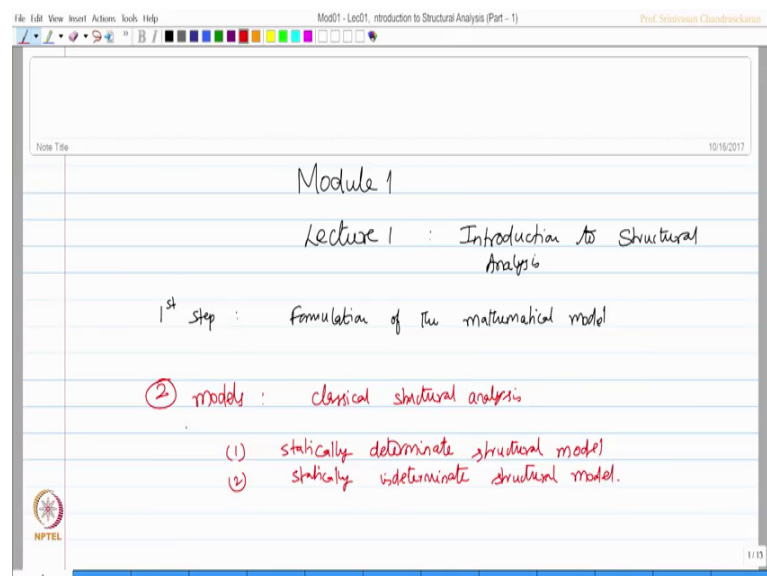 File Edit View Insert Actions Tools Help
Mod01 - Lec01, ntroduction to Structural Analysis (Part – 1)
Prof. Srinivasan Chandrasekaran
B I
Note Title
10/16/2017
Module 1
Lecture 1 : Introduction to Structural
Analysis
1st step : Formulation of the mathematical model
2 models : classical structural analysis
(1) statically determinate structural model
(2) statically indeterminate structural model.
NPTEL
1/13